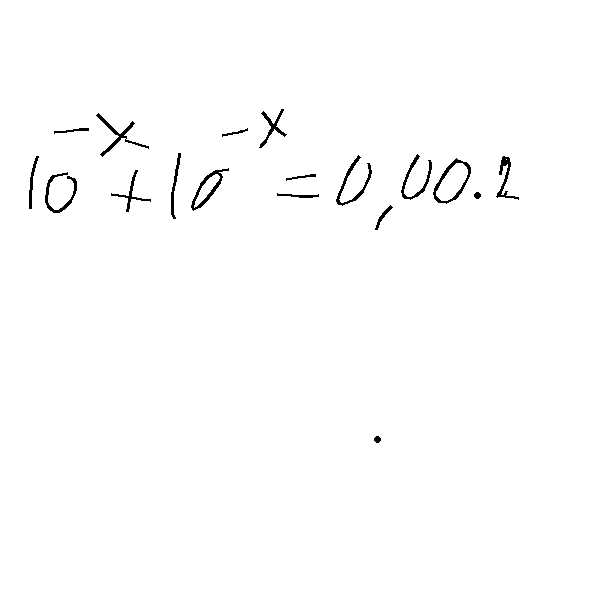 10^{-x} + 10^{-x} = 0,00.2